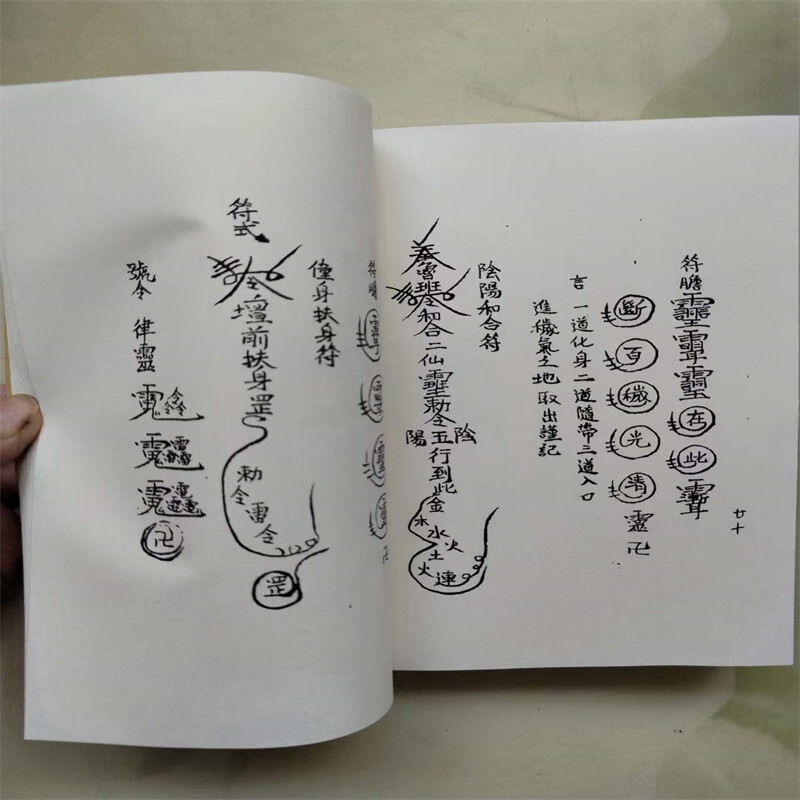 符膽
在此
斷百穢光清靈卍
言 一道化身二道隨帶三道入口
進穢氣之地取出謹記
陰陽和合符
奉魯班令和合二仙勅令五行到此金
陰陽
木水火土火連
廿十
符膽
僮身扶身符
符式
令壇前扶身罡
勅令雷令
罡
號令 律靈
卍